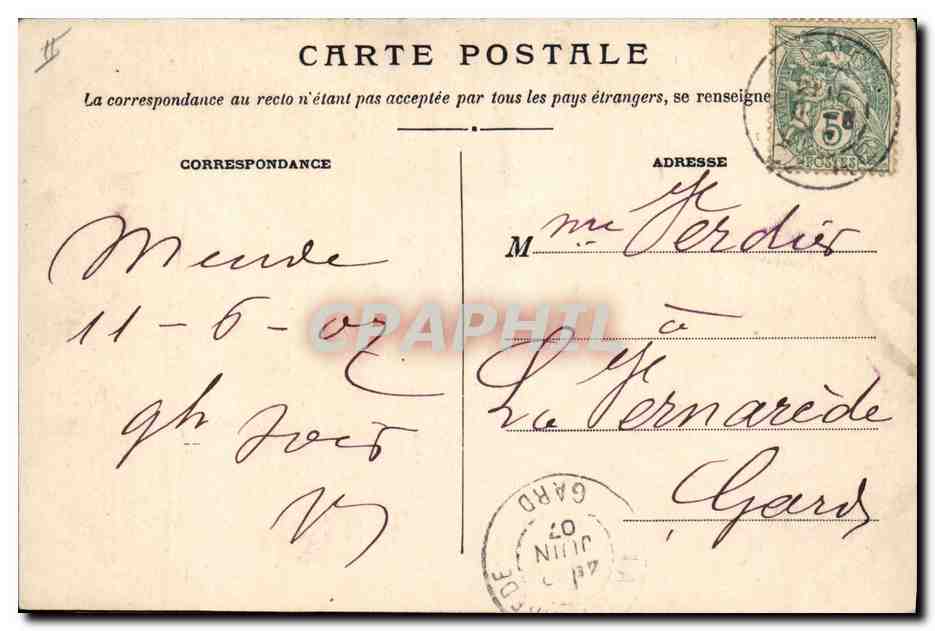 CARTE POSTALE
La correspondance au recto n'étant pas acceptée par tous les pays étrangers, se renseigne
CORRESPONDANCE
Mende
11 - 6 - 07
9h soir
V
ADRESSE
M me Verdier
à
La Vernarède
Gard
5
POSTES
GARD
07
JUIN
EDE
CPAPHIL